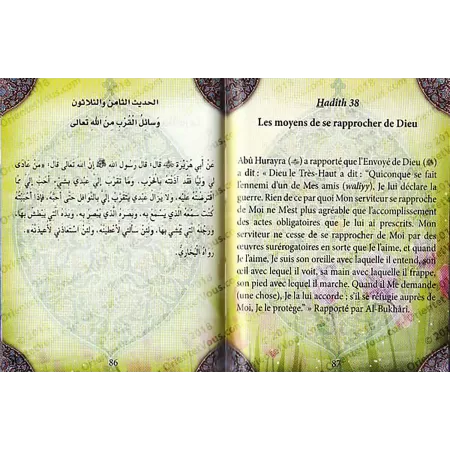 الحديث الثامن والثلاثون
وسائل القرب من الله تعالى
عَنْ أَبي هُرَيْرَةَ ﷺ قال: قال رَسُول الله ﷺ إنَّ الله تَعَالى قال: «مَنْ عَادَى
لي وَلِيًّا فَقَد آذَنْتُهُ بِالْحَرْبِ، وَمَا تَقَرَّبَ إِلَيَّ عَبْدِي بِشَيءٍ أَحَبَّ إِلَيَّ مِمَّا
افْتَرَضْتُهُ عَلَيْهِ، وَلا يَزَالُ عَبْدِي يَتَقَرَّبُ إِلَيَّ بِالنَّوَافِلِ حَتَّى أُحِبَّهُ، فَإِذَا أَحْبَبْتُهُ
كُنْتُ سَمْعَهُ الَّذِي يَسْمَعُ بِهِ، وَبَصَرَهُ الَّذِي يُبْصِرُ بِهِ، وَيَدَهُ الَّتِي يَبْطِشُ بِهَا،
وَرِجْلَهُ الَّتِي يَمْشِي بِهَا، وَلَئِنْ سَأَلَنِي لأُعْطِيَنَّهُ، وَلَئِنْ اسْتَعَاذَنِي لأُعِيذَنَّهُ».
رواهُ البُخَارِي.
86
Hadith 38
Les moyens de se rapprocher de Dieu
Abû Hurayra (ﷺ) a rapporté que l'Envoyé de Dieu (ﷺ)
a dit : « Dieu le Très-Haut a dit : "Quiconque se fait
l'ennemi d'un de Mes amis (waliyy), Je lui déclare la
guerre. Rien de ce par quoi Mon serviteur se rapproche
de Moi ne M'est plus agréable que l'accomplissement
des actes obligatoires que Je lui ai prescrits. Mon
serviteur ne cesse de se rapprocher de Moi par des
œuvres surérogatoires en sorte que Je l'aime, et quand
Je l'aime, Je suis son oreille avec laquelle il entend, son
œil avec lequel il voit, sa main avec laquelle il frappe,
son pied avec lequel il marche. Quand il Me demande
(une chose), Je la lui accorde ; s'il se réfugie auprès de
Moi, Je le protège." » Rapporté par Al-Bukhârî.
87